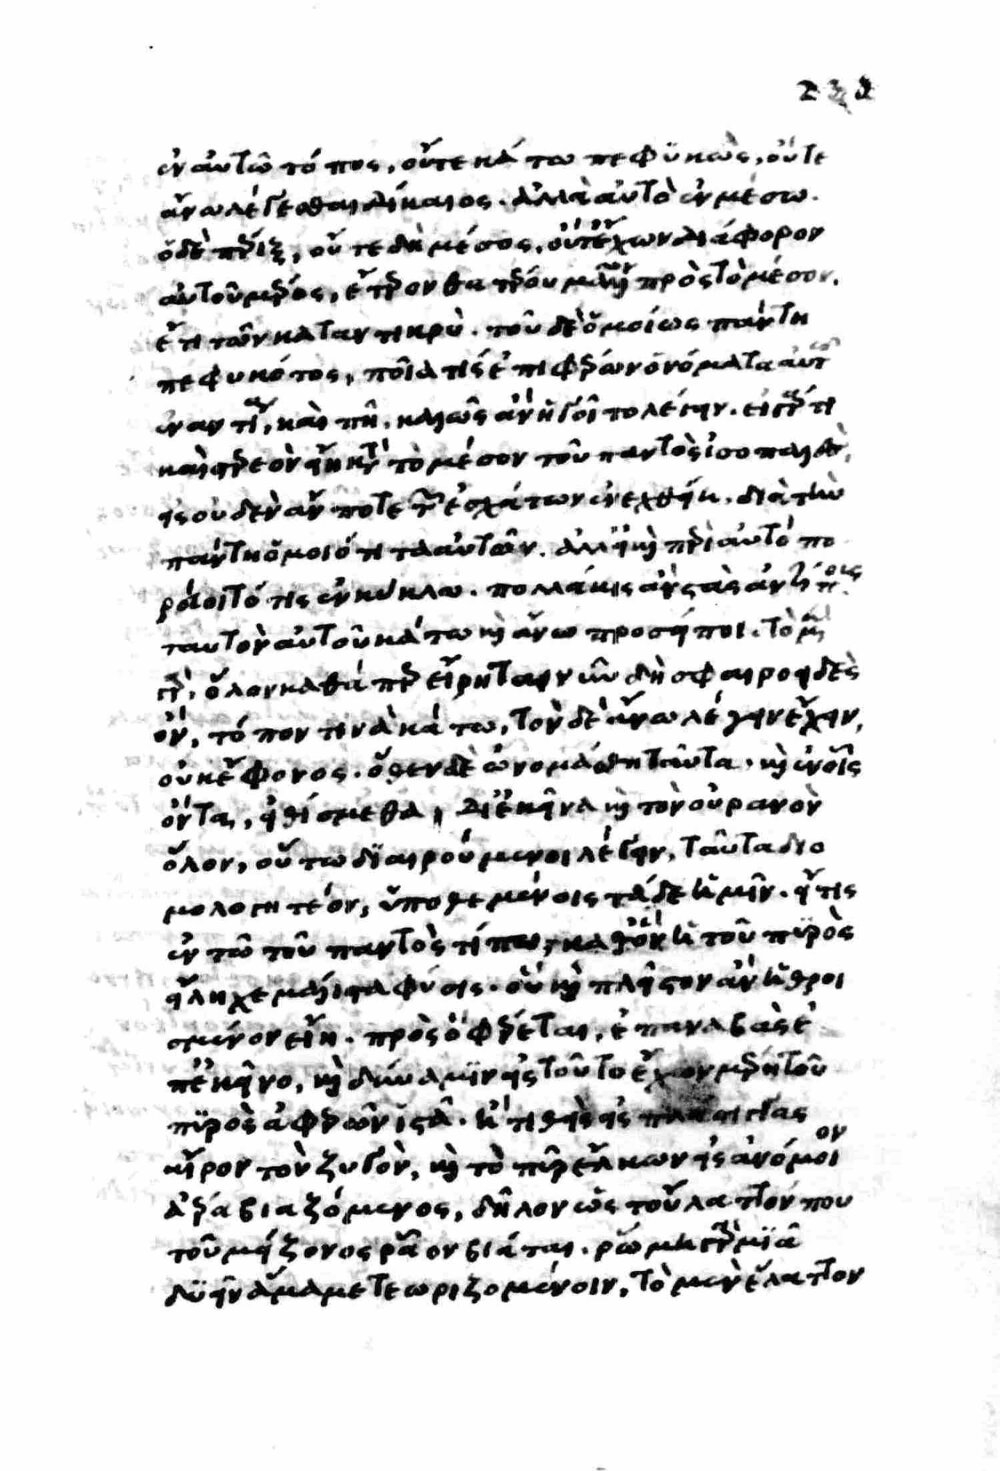 ἐν αὐτῶ τόπος, οὔτε κάτω πεφϋκὼς, οὔτε
ἄνω λέγεσθαι δίκαιος. ἀλλὰ αὐτὸ ἐν μέσω.
ὁ δὲ πέριξ, οὔτε δὴ μέσος, οὔτ' ἔχων διάφορον
αὐτοῦ μέρος, ἕτερον θατέρου μᾶλλον πρὸς τὸ μέσον,
ἤ τι τῶν καταντικρὺ. τοῦ δὲ ὁμοίως πάντη
πεφυκότος, ποῖά τις ἐπιφέρων ὀνόματα αὐτῶ
ἐναντία, καὶ πῆ, καλῶς ἂν ἡγοῖτο λέγειν. εἰ γάρ τι
καὶ στερεὸν εἴη κατὰ τὸ μέσον τοῦ παντὸς ἰσοπαλὲς,
εἰς οὐδὲν ἄν ποτε τῶν ἐσχάτων ἐνεχθείη. διὰ τὴν
πάντη ὁμοιότητα αὐτῶν. ἀλλ' εἰ καὶ περὶ αὐτὸ πο
ρεύοιτό τις ἐν κύκλω. πολλάκις ἂν στὰς ἀντίπους
ταυτὸν αὐτοῦ κάτω καὶ ἄνω προσείποι. τὸ μὲν
γὰρ, ὅλον καθάπερ εἴρηται νῦν δὴ σφαιροειδὲς
ὂν, τόπον τινὰ κάτω, τὸν δὲ ἄνω λέγειν ἔχειν,
οὐκ ἔμφρονος. ὅθεν δὲ ὠνομάσθη ταῦτα. καὶ ἐν οἷς
ὄντα, εἰθίσμεθα, δι' ἐκεῖνα καὶ τὸν οὐρανὸν
ὅλον, οὕτω διαιρούμενοι λέγειν, ταῦτα διο
μολογητέον, ὑποθεμένοις τάδε ἡμῖν. εἴ τις
ἐν τῶ τοῦ παντὸς τόπω, καθ' ὃν ἡ τοῦ πϋρὸς
εἴληχε μάλιστα φύσις. οὗ καὶ πλεῖστον ἂν ἠθροι
σμένον εἴη. πρὸς ὃ φέρεται, ἐπαναβὰς ἐ
π' ἐκεῖνο, καὶ δύναμιν εἰς τοῦτο ἔχων μέρη τοῦ
πϋρὸς ἀφαιρῶν ἱστᾶ. ἢ τιθεὶς εἰς πλάστιγγας
αἴρον τὸν ζυγὸν, καὶ τὸ πῦρ ἕλκων εἰς ἀνόμοιον
ἀέρα βιαζόμενος, δῆλον ὡς τοὔλαττόν που
τοῦ μείζονος ῥᾶον βιᾶται. ῥώμη γὰρ μιᾶ
δυεῖν ἅμα μετεωριζομένοιν, τὸ μὲν ἔλαττον